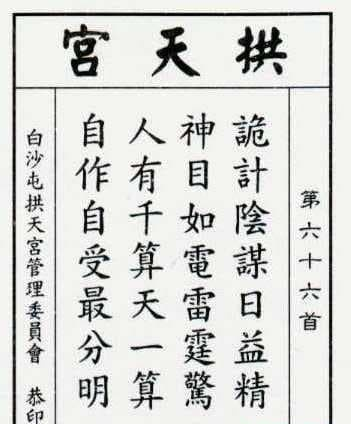 拱天宮
第六十六首
詭計陰謀日益精
神目如電雷霆驚
人有千算天一算
自作自受最分明
白沙屯拱天宮管理委員會 恭印